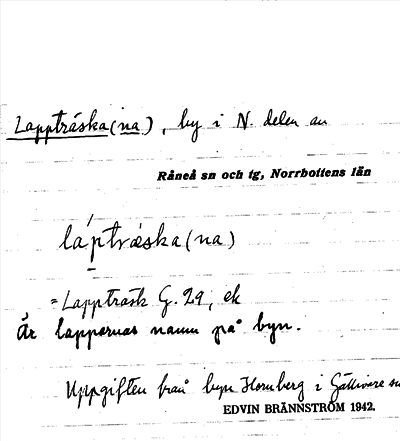 Lappträska(na), by i N. delen av
Råneå sn och tg, Norrbottens län
láptræska(na)
= Lappträsk G. 29, ek
Är lapparnas namn på byn.
Uppgiften från byn Hornberg i Gällivare sn
EDVIN BRÄNNSTRÖM 1942.